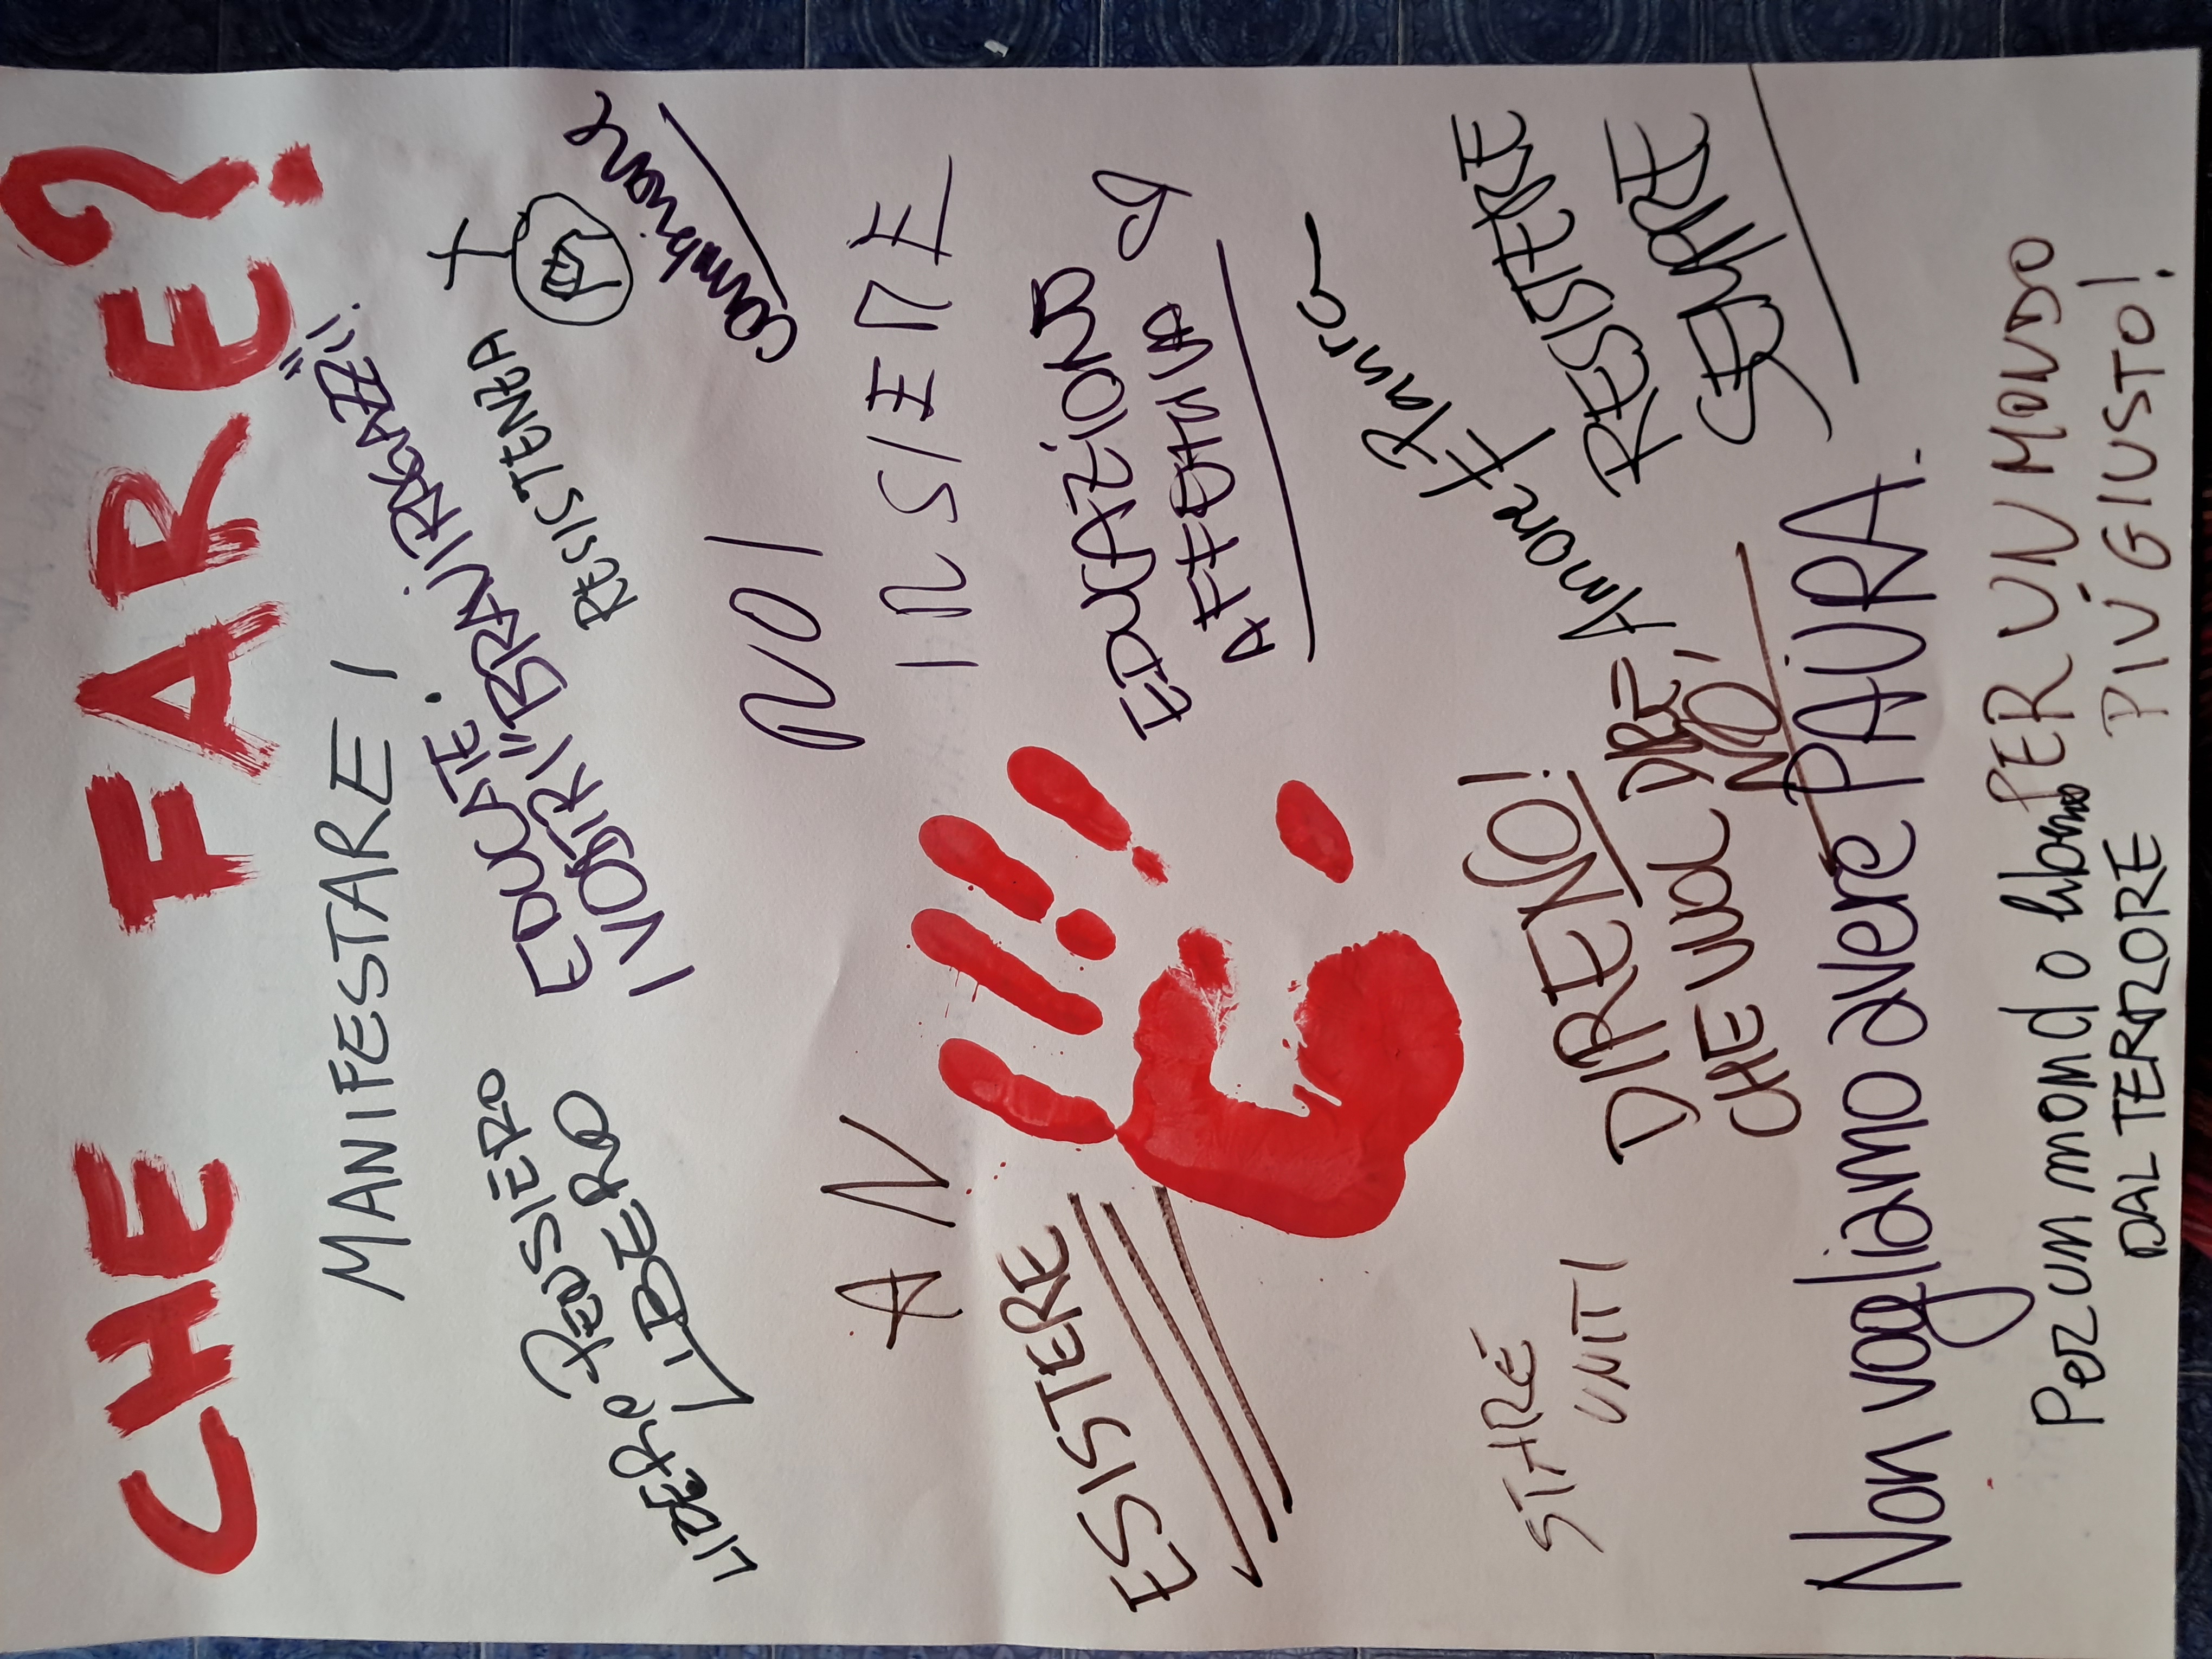 CHE FARE?
MANIFESTARE!
EDUCATE!
I VOSTRI "BRAVI RAGAZZI"!
RESISTENZA
cambiare
PENSIERO
LIBERO
LIBERO
NOI
INSIEME
AN
ESISTERE
EDUCAZIONE
AFFETTIVA
Amore
Paura
RESISTERE
SEMPRE
DIRE NO!
CHE VUOL DIRE
NO!
STARE
UNITI
Non vogliamo avere PAURA.
Per un mondo libero
DAL TERRORE
PER UN MONDO
PIÚ GIUSTO!